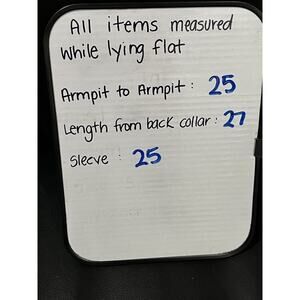 All items measured
while lying flat
Armpit to Armpit : 25
Length from back collar : 27
Sleeve : 25